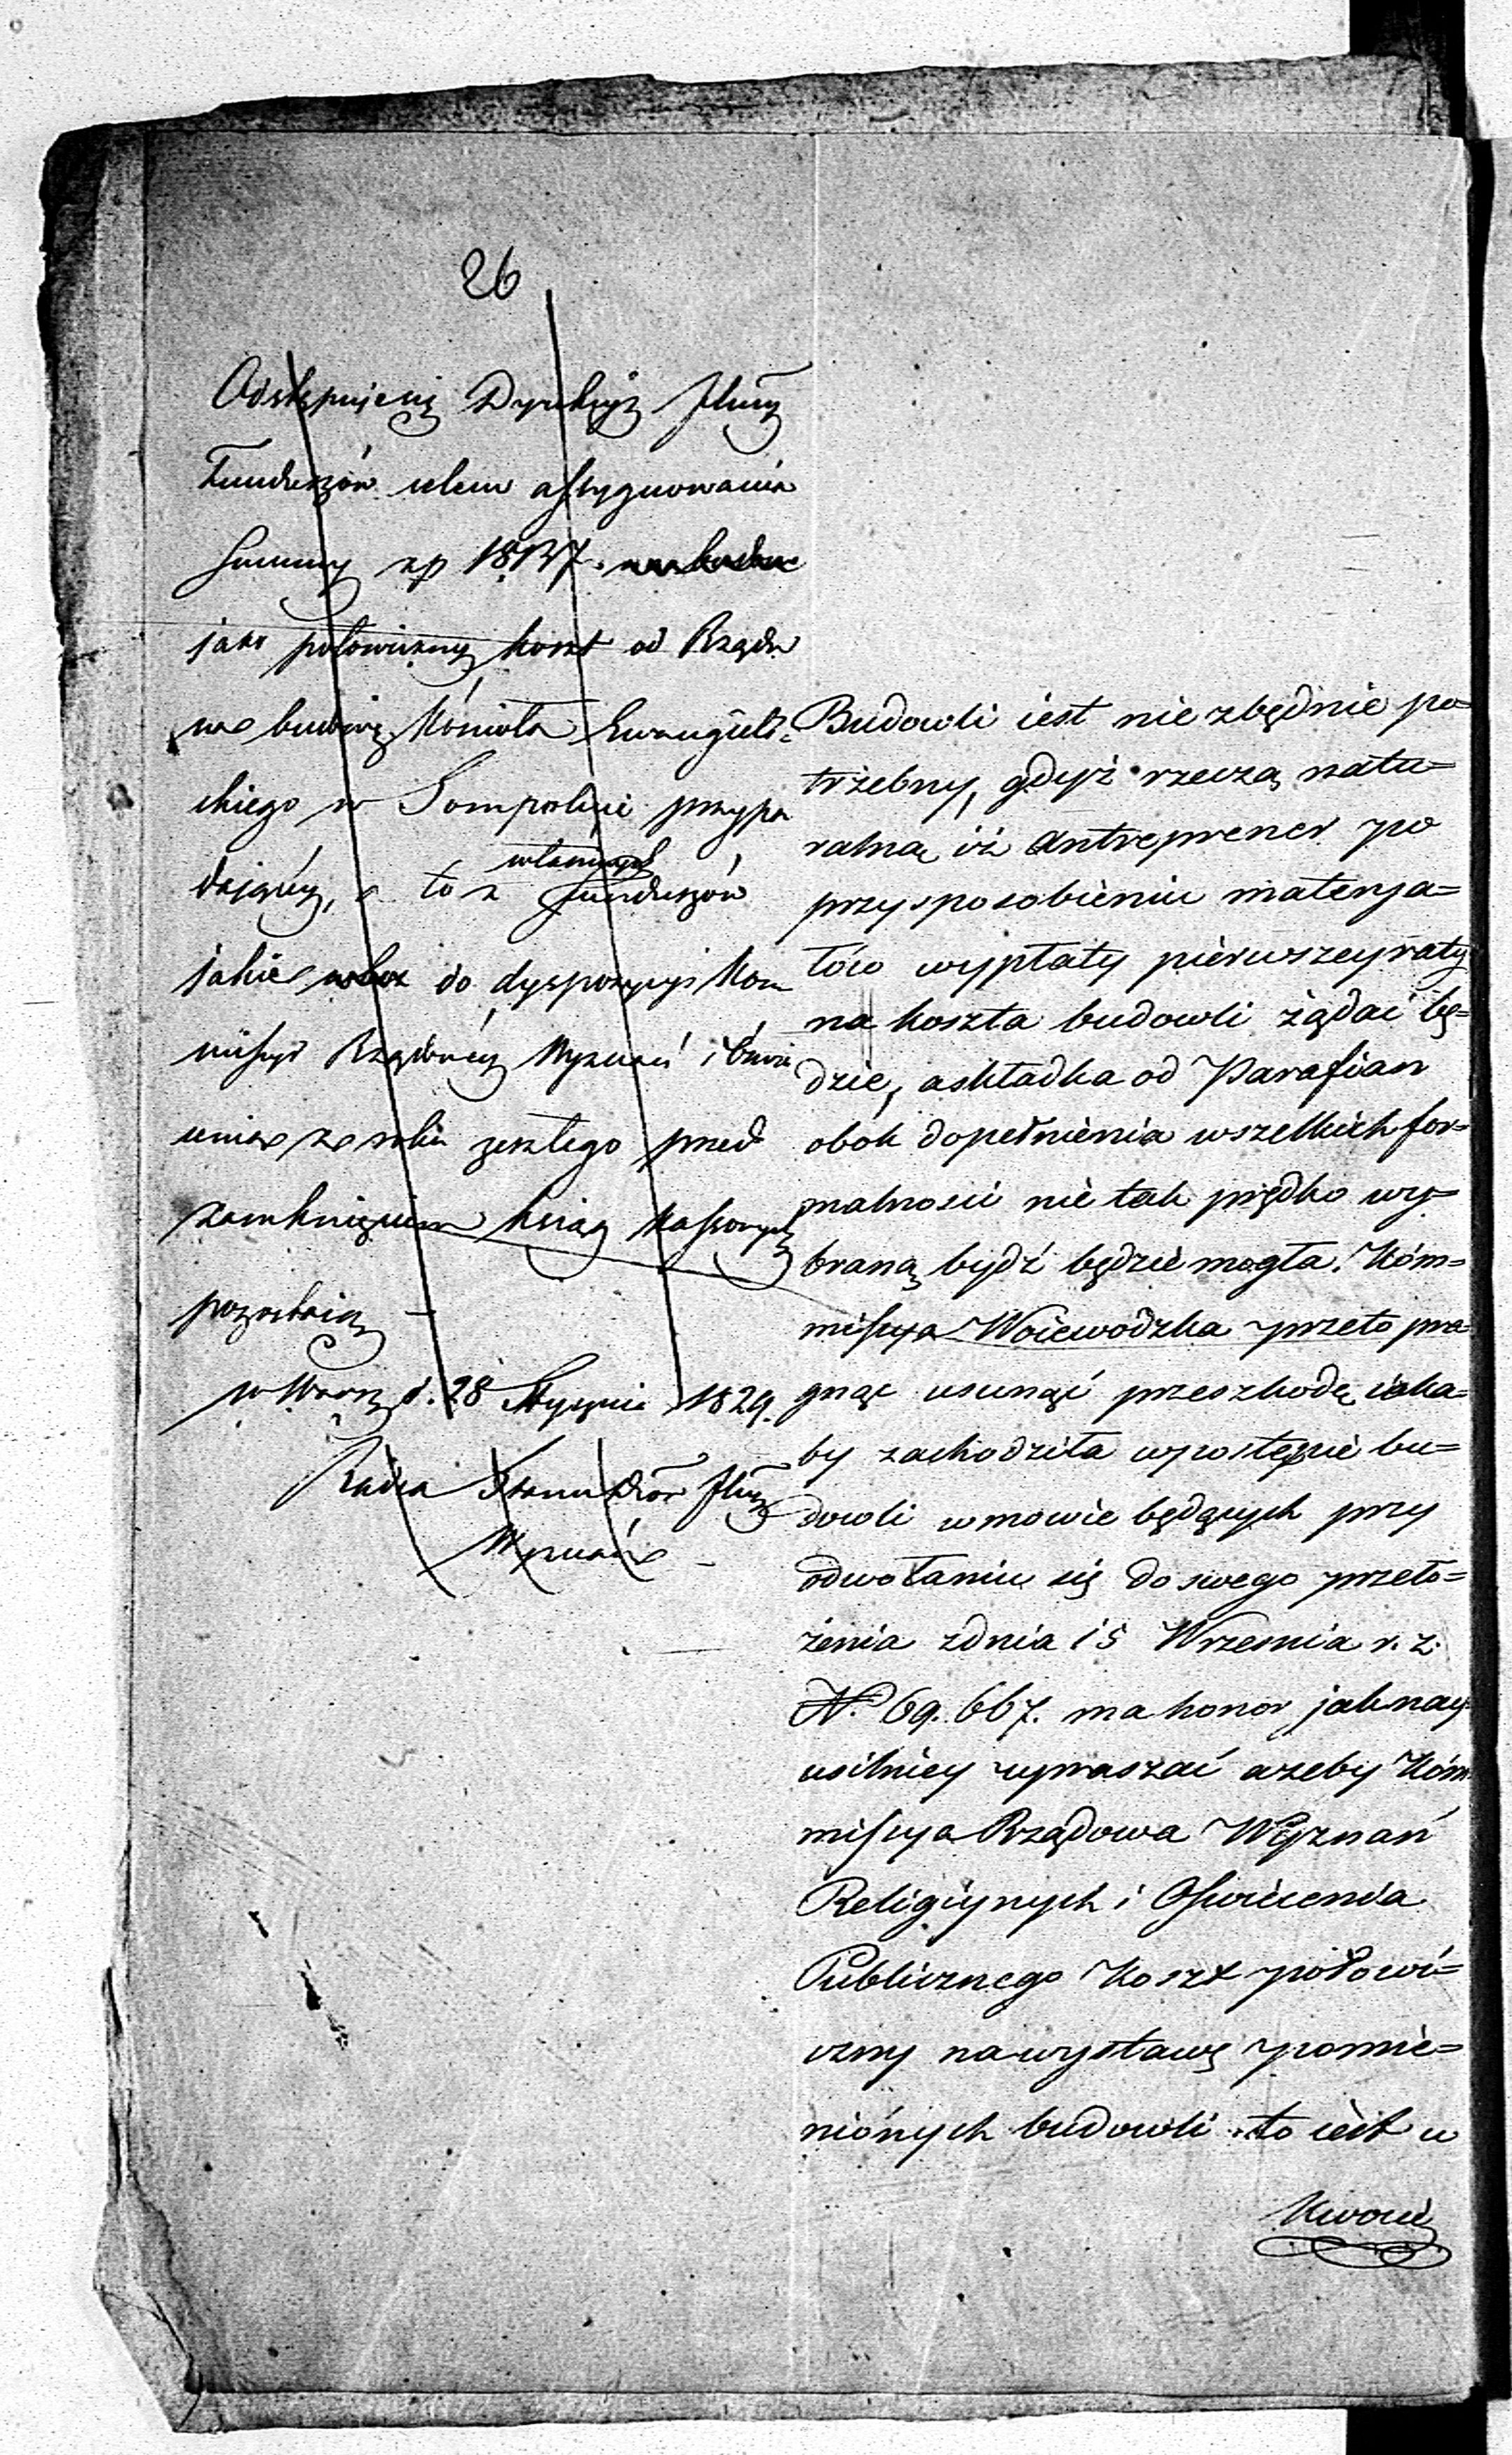 26
Odstępuje się Dyrekcyi Jlney
Funduszów celem assygnowania
Summy zp 18137.
jako połowiczny koszt od Rządu
na budowę Kościoła Ewangieli-
ckiego w Sompolnie przypa
dający, a to z funduszów
własnych
jakie do dyspozycyi Kom
missyi Rządowey Wyznań i Oświe
cenia z roku zeszłego przed
zamknięciem ksiąg Kassowych
pozostaią —
w Warsz d. 28 Stycznia 1829.
Radca Stanu Dior Jlny
Wyznań
Budowli iest niezbędnie po=
trzebny, gdyż rzeczą natu=
ralną iż Antreprener po
przysposobieniu materya=
łów wypłaty pierwszey raty
na koszta budowli żądać bę=
dzie, a składka od Parafian
obok dopełnienia wszelkich for=
malnosci nie tak prędko wy=
braną bydź będzie mogła. Kom=
missya Woiewodzka przeto pra
gnąc usunąć przeszkodę iaka=
by zachodziła w postępie bu=
dowli w mowie będących przy
odwołaniu się do swego przeło=
żenia z dnia 15 Wrzesnia r. z.
N. 69.667. ma honor jaknay
usilniey upraszać ażeby Kom
missya Rządowa Wyznań
Religiynych i Oswiecenia
Publicznego koszt połowi=
czny na wystawę pomie=
nionych budowli to iest w
Kwocie